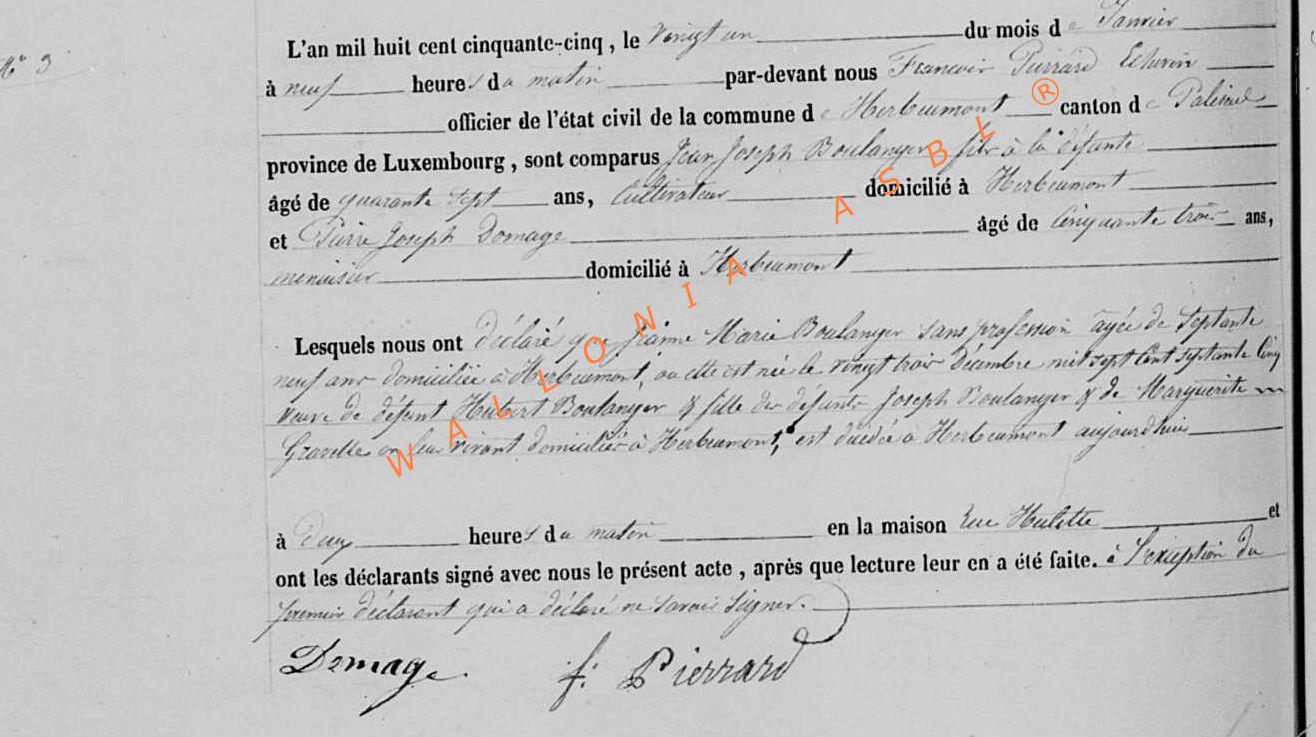 N° 3
L'an mil huit cent cinquante-cinq, le vingt un du mois de Janvier
à neuf heures du matin par-devant nous François Pierrard Echevin
officier de l'état civil de la commune de Herbeumont canton de Paliseul
province de Luxembourg, sont comparus Jean Joseph Boulanger fils à la défunte
âgé de quarante sept ans, Cultivateur domicilié à Herbeumont
et Pierre Joseph Domage âgé de Cinquante trois ans,
menuisier domicilié à Herbeumont
Lesquels nous ont déclaré que Jeanne Marie Boulanger sans profession agée de Septante
neuf ans domiciliée à Herbeumont, ou elle est née le vingt trois Décembre mil sept cent septante Cinq
veuve de défunt Hubert Boulanger & fille des défunts Joseph Boulanger & de Marguerite
Gravelle en leur vivant domiciliés à Herbeumont, est décédée à Herbeumont aujourd'hui
à Deux heures du matin en la maison Rue Hulette et
ont les déclarants signé avec nous le présent acte, après que lecture leur en a été faite. à l'exception du
premier déclarant qui a déclaré ne savoir signer.
Domage f. Pierrard
WALLONIA ASBL ®